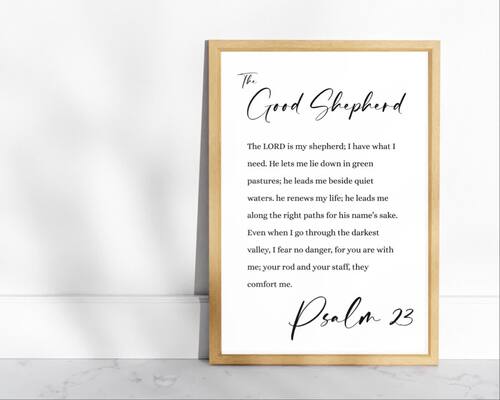 The
Good Shepherd
The LORD is my shepherd; I have what I
need. He lets me lie down in green
pastures; he leads me beside quiet
waters. he renews my life; he leads me
along the right paths for his name's sake.
Even when I go through the darkest
valley, I fear no danger, for you are with
me; your rod and your staff, they
comfort me.
Psalm 23